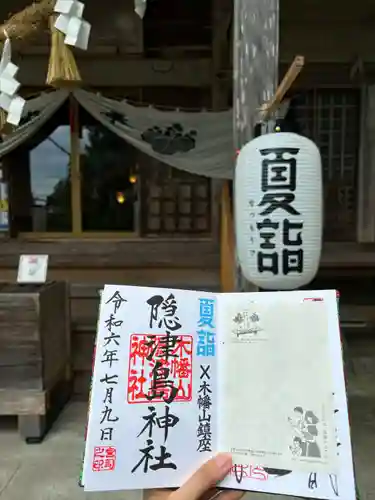 夏詣
令和六年七月九日
隠津島神社
木幡山
神社
夏詣
×木幡山鎮座